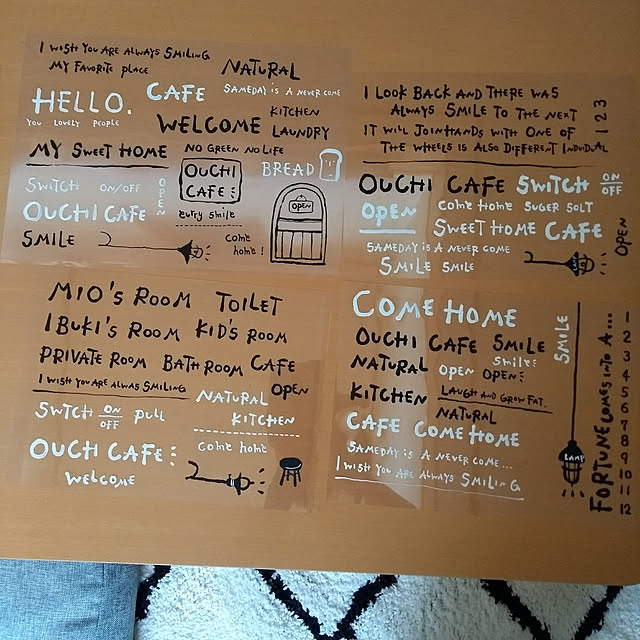 I WISH YOU ARE ALWAYS SMILING
MY FAVORITE PLACE
NATURAL
HELLO.
CAFE
SAMEDAY IS A NEVER COME
YOU LOVELY PEOPLE
WELCOME
KITCHEN
LAUNDRY
MY SWEET HOME
NO GREEN NO LIFE
OUCHI
CAFE:
BREAD
SWITCH ON/OFF
OPEN
OUCHI CAFE
curry smile
OPEN
SMILE
come
home!
I LOOK BACK AND THERE WAS
ALWAYS SMILE TO THE NEXT
IT WILL JOINHANDS WITH ONE OF
THE WHEELS IS ALSO DIFFERENT INDVIDUAL
1 2 3
OUCHI CAFE
SWITCH ON
OFF
OPEN
COME HOME SUGER SOLT
SWEET HOME CAFE
SAMEDAY IS A NEVER COME
SMILE SMILE
LAMP
OPEN
MIO'S ROOM TOILET
IBUKI'S ROOM KID'S ROOM
PRIVATE ROOM BATH ROOM CAFE
I WISH YOU ARE ALWAS SMILING
OPEN
NATURAL
KITCHEN
SWTCH ON
OFF
PULL
OUCH CAFE:
come home
WELCOME
COME HOME
OUCHI CAFE SMILE
NATURAL
Smile:
OPEN OPEN:
KITCHEN
LAUGH AND GROW FAT.
NATURAL
CAFE COME HOME
SAMEDAY IS A NEVER COME...
I WISH YOU ARE ALWAYS SMILING
SMILE
LAMP
FORTUNE COMES INTO A...
1
2
3
4
5
6
7
8
9
10
11
12